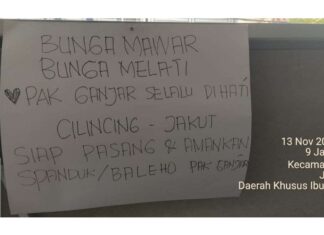 BUNGA MAWAR
BUNGA MELATI
PAK GANJAR SELALU DIHATI
CILINCING - JAKUT
SIAP PASANG & AMANKAN
SPANDUK/BALEHO PAK GANJAR
13 Nov 20
9 Ja
Kecama
J
Daerah Khusus Ibu